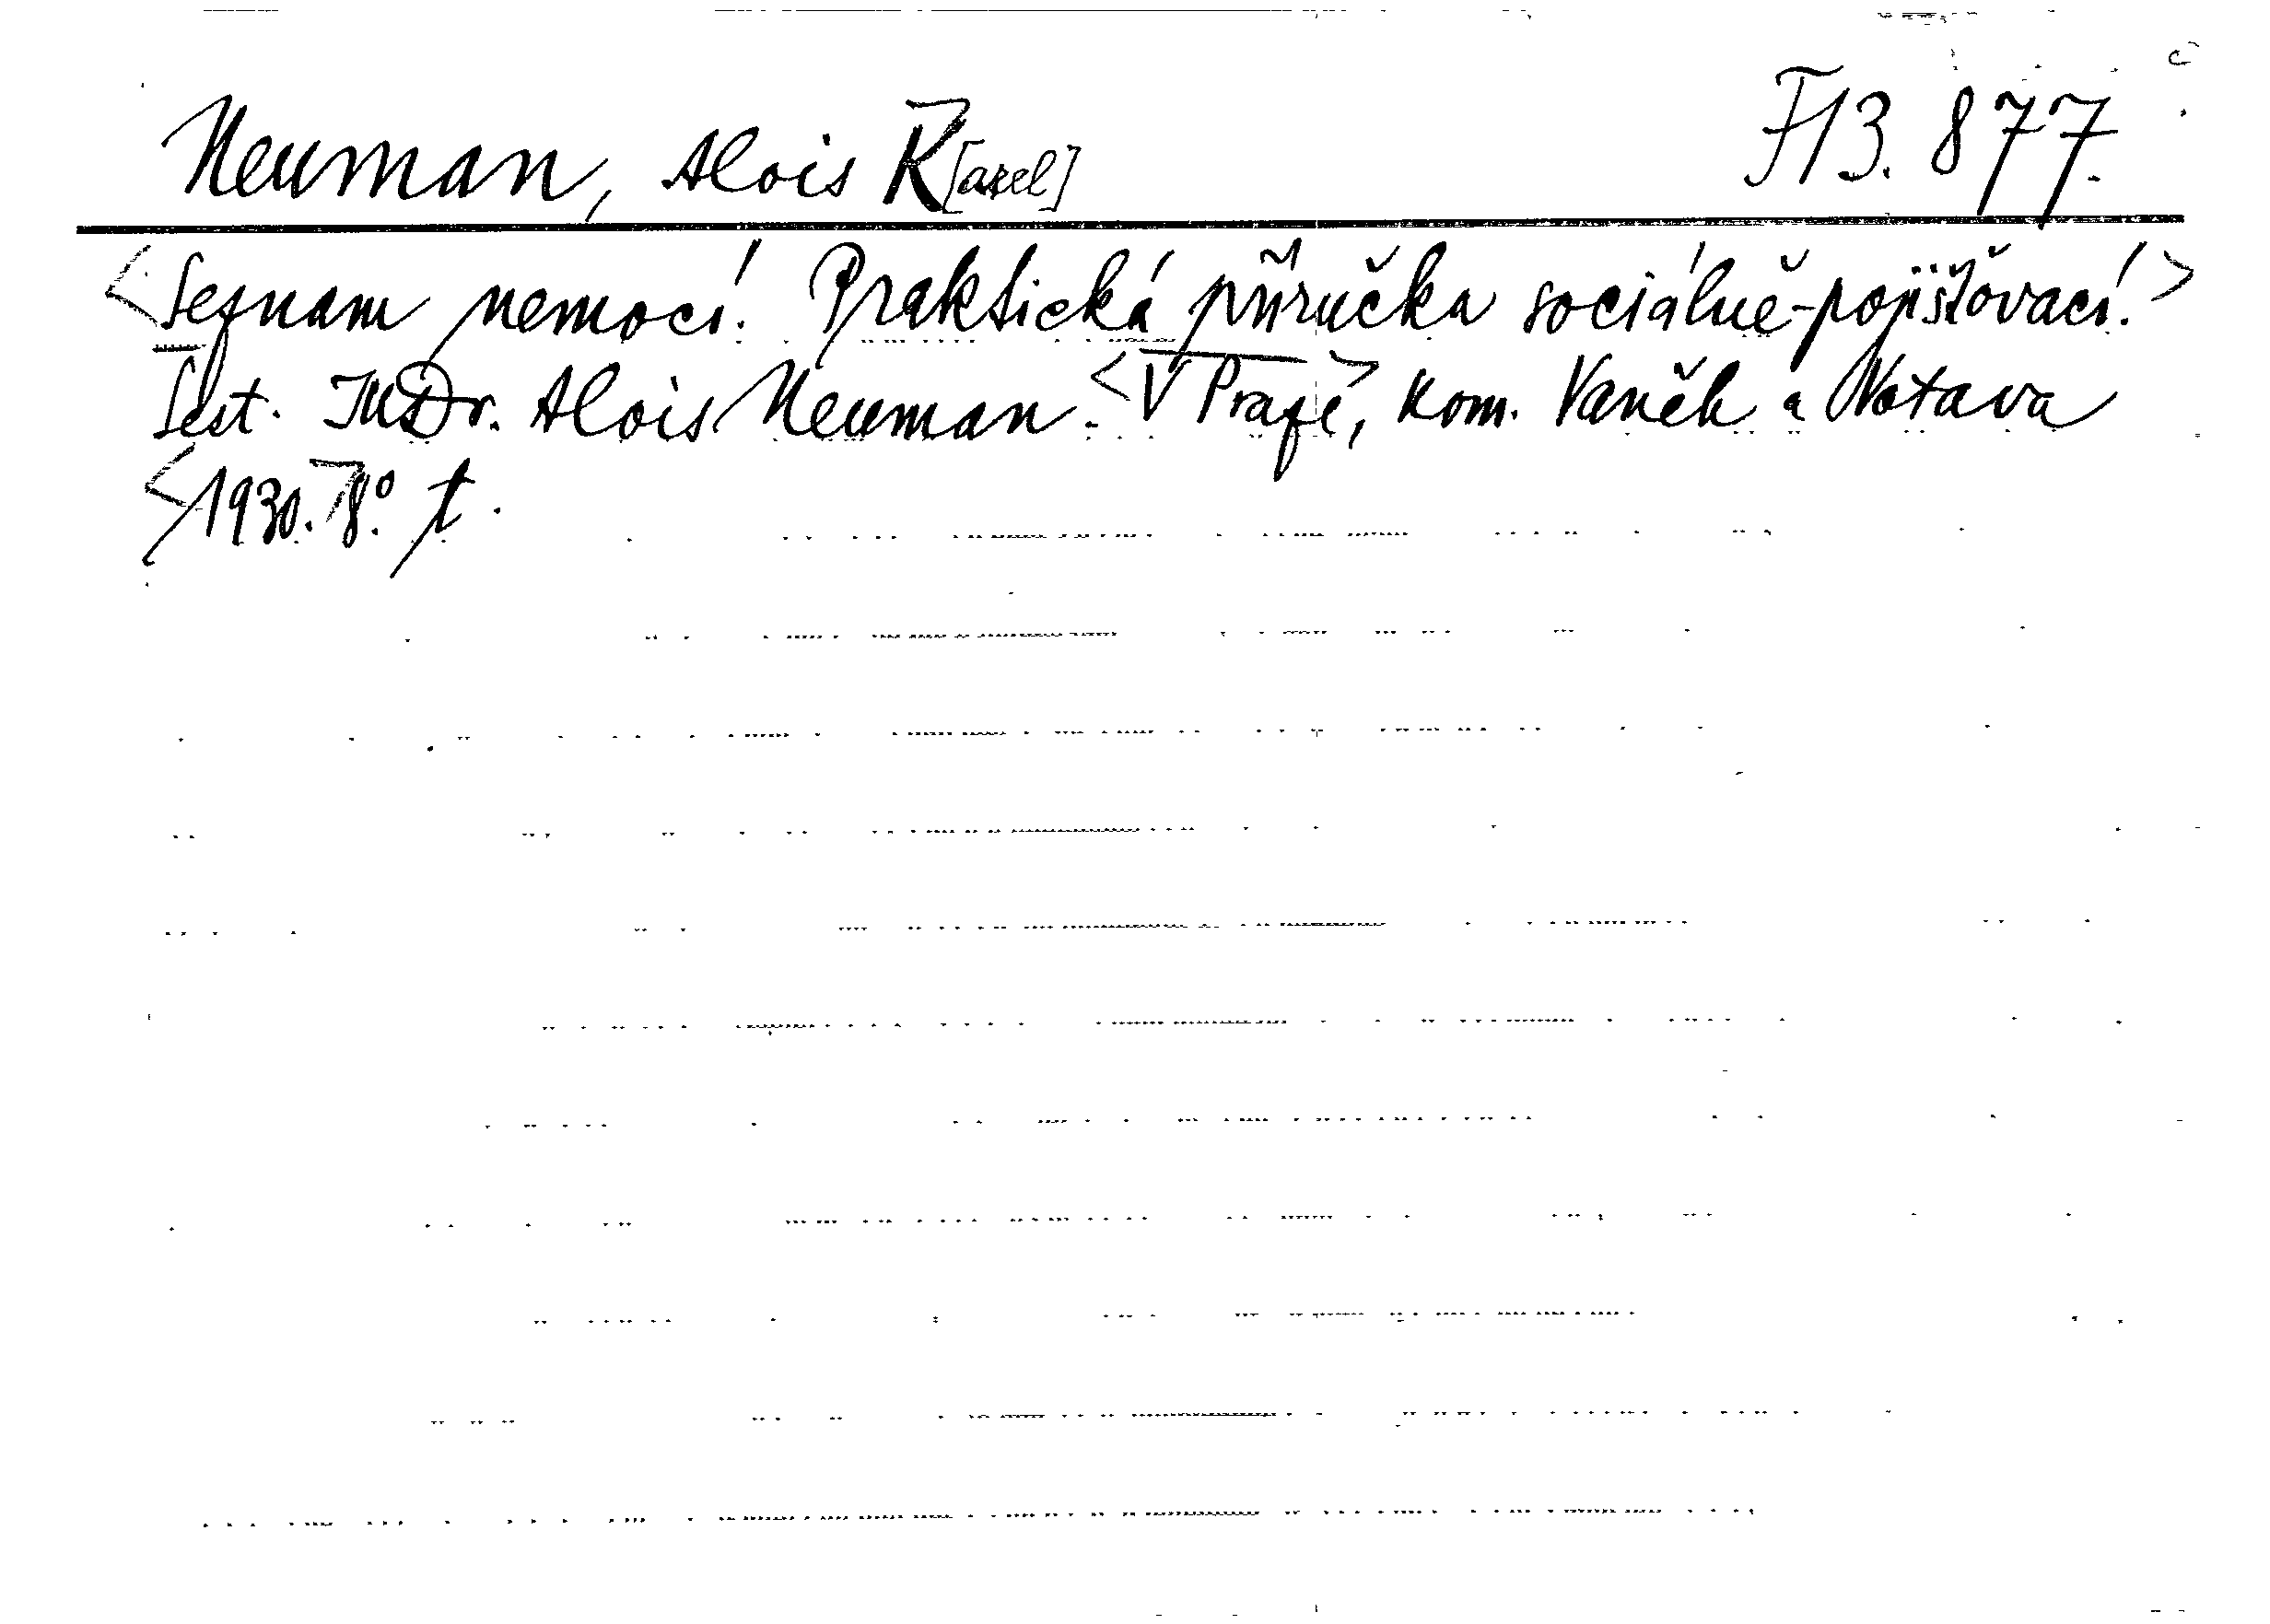 Neuman, Alois K[arel] F13.877.
<Seznam nemocí. Praktická příručka sociálně-pojišťovací.>
Sest. JUDr. Alois Neuman. <V Praze>, kom. Vaněk a Votava
<1930.> 8°. t.